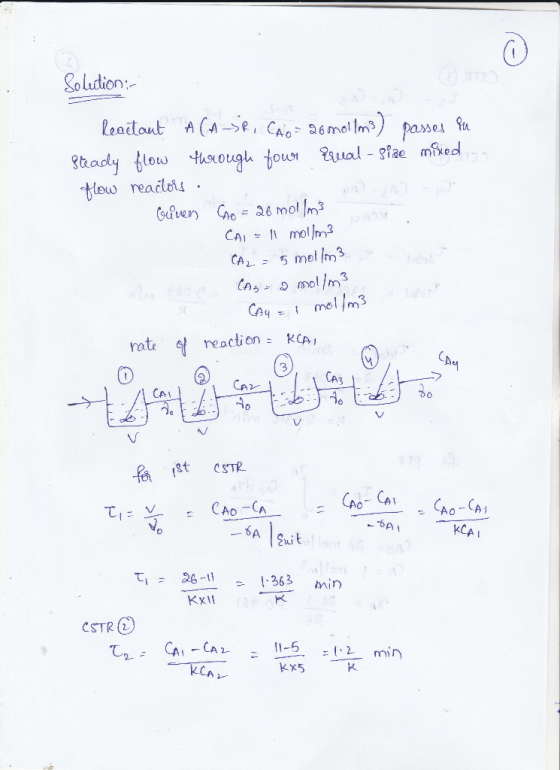 1
Solution:-
Reactant A (A → R, CA0 = 26 mol/m³) passes in
steady flow through four equal-size mixed
flow reactors.
Given CA0 = 26 mol/m³
CA1 = 11 mol/m³
CA2 = 5 mol/m³
CA3 = 2 mol/m³
CA4 = 1 mol/m³
rate of reaction = KCA,
1 2 3 4
CA1 CA2 CA3 CA4
γ0 γ0 γ0 γ0
V V V V
for 1st CSTR
τ1 = V/V0 = (CA0 - CA)/(-γA)|Exit = (CA0 - CA1)/(-γA1) = (CA0 - CA1)/(KCA1)
τ1 = (26-11)/(K×11) = 1.363/K min
CSTR 2
τ2 = (CA1 - CA2)/(KCA2) = (11-5)/(K×5) = 1.2/K min